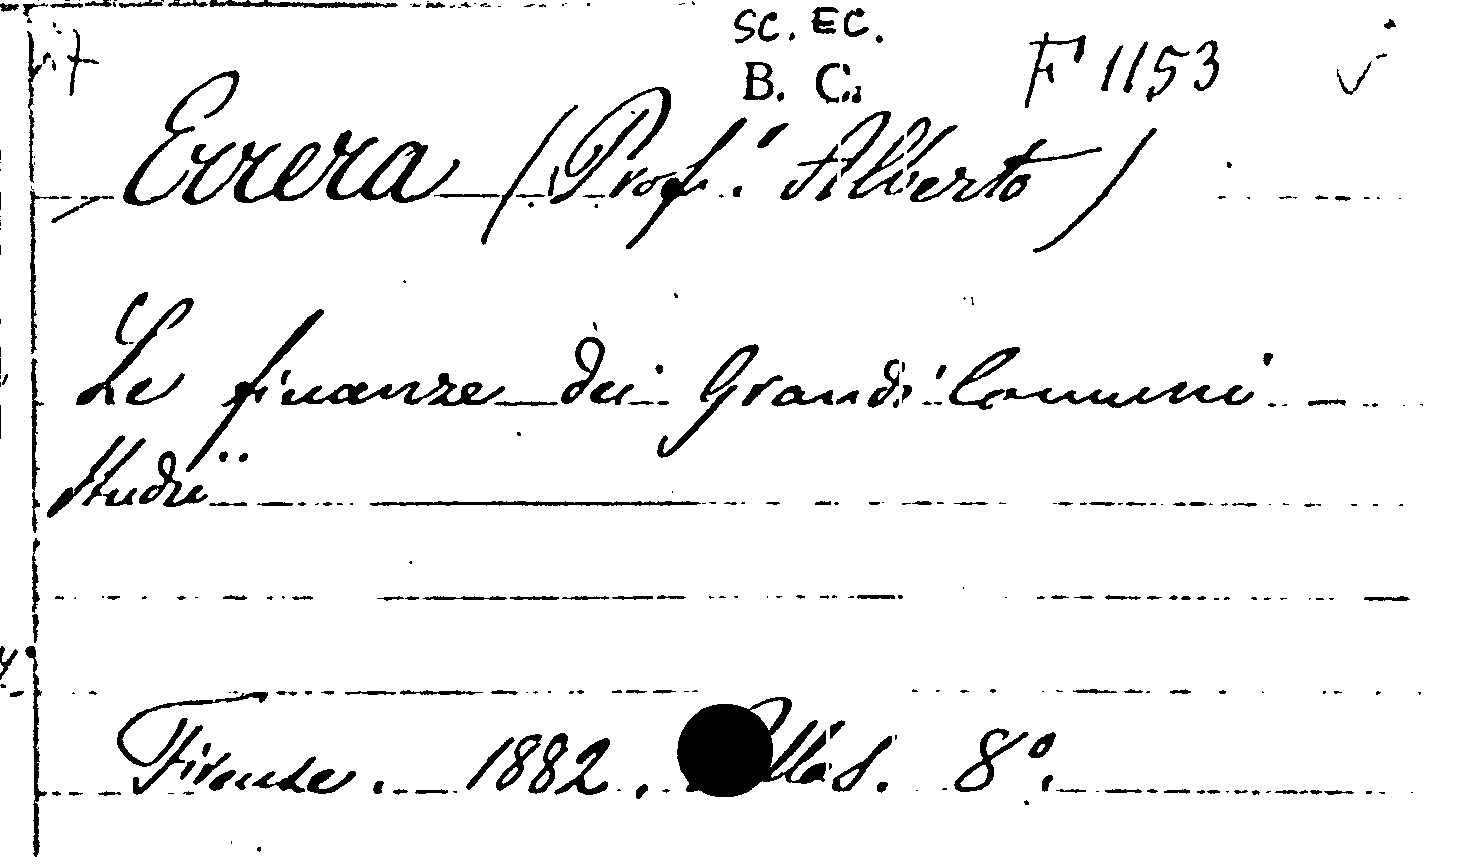 SC. EC.
B. C. F 1153
Errera (Prof. Alberto)
Le finanze dei Grandi Comuni -
Studii
Firenze. 1882. 8º.